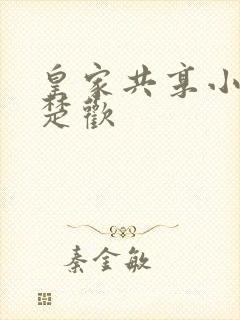 皇家共享小
楚歡
秦金敏